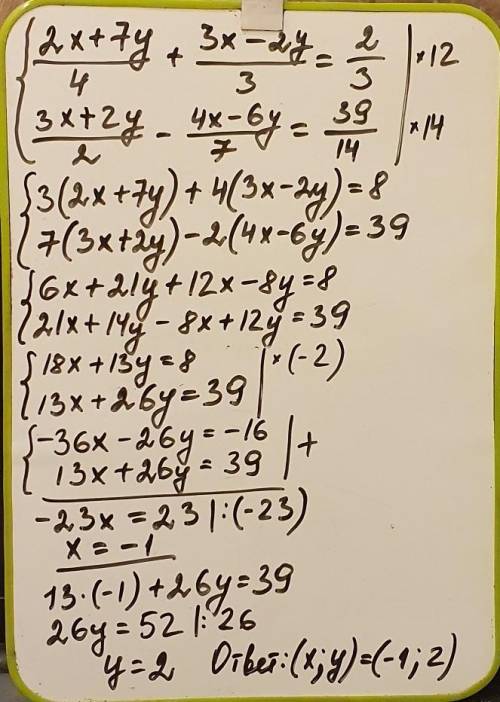 (2x+7y)/4 + (3x-2y)/3 = 2/3 | ×12
(3x+2y)/2 - (4x-6y)/7 = 39/14 | ×14
3(2x+7y)+4(3x-2y)=8
7(3x+2y)-2(4x-6y)=39
6x+21y+12x-8y=8
21x+14y-8x+12y=39
18x+13y=8 | ×(-2)
13x+26y=39
-36x-26y=-16 | +
13x+26y=39
-23x=23 |:(-23)
x=-1
13·(-1)+26y=39
26y=52 |:26
y=2 Ответ:(x;y)=(-1;2)